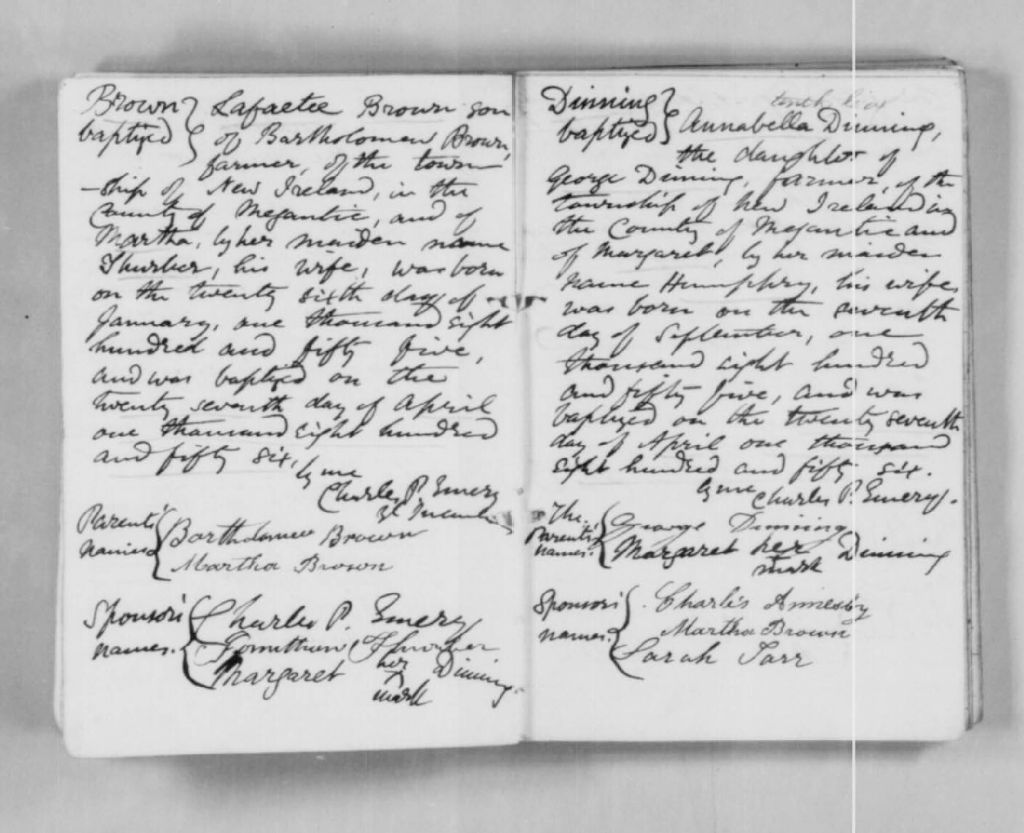 Brown baptized } Lafaetee Brown son
of Bartholomew Brown,
farmer, of the town
-ship of New Ireland, in the
County of Megantic, and of
Martha, by her maiden name
Thurber, his wife, was born
on the twenty sixth day of
January, one thousand eight
hundred and fifty five,
and was baptized on the
twenty seventh day of April
one thousand eight hundred
and fifty six,
by me
Charles P. Emery
Parents' names { Bartholomew Brown
Martha Brown
Sponsors' names. { Charles P. Emery
Jonathan Thurber
Margaret her mark Dinning.
tenth
Dinning baptized } Annabella Dinning,
the daughter of
George Dinning, farmer, of the
township of New Ireland in
the County of Megantic and
of Margaret, by her maiden
name Humphry, his wife,
was born on the seventh
day of September, one
thousand eight hundred
and fifty five, and was
baptized on the twenty seventh
day of April one thousand
eight hundred and fifty six.
by me Charles P. Emery.
The Parents' names. { George Dinning
Margaret her mark Dinning
Sponsors' names. { Charles Annesby
Martha Brown
Sarah Tarr